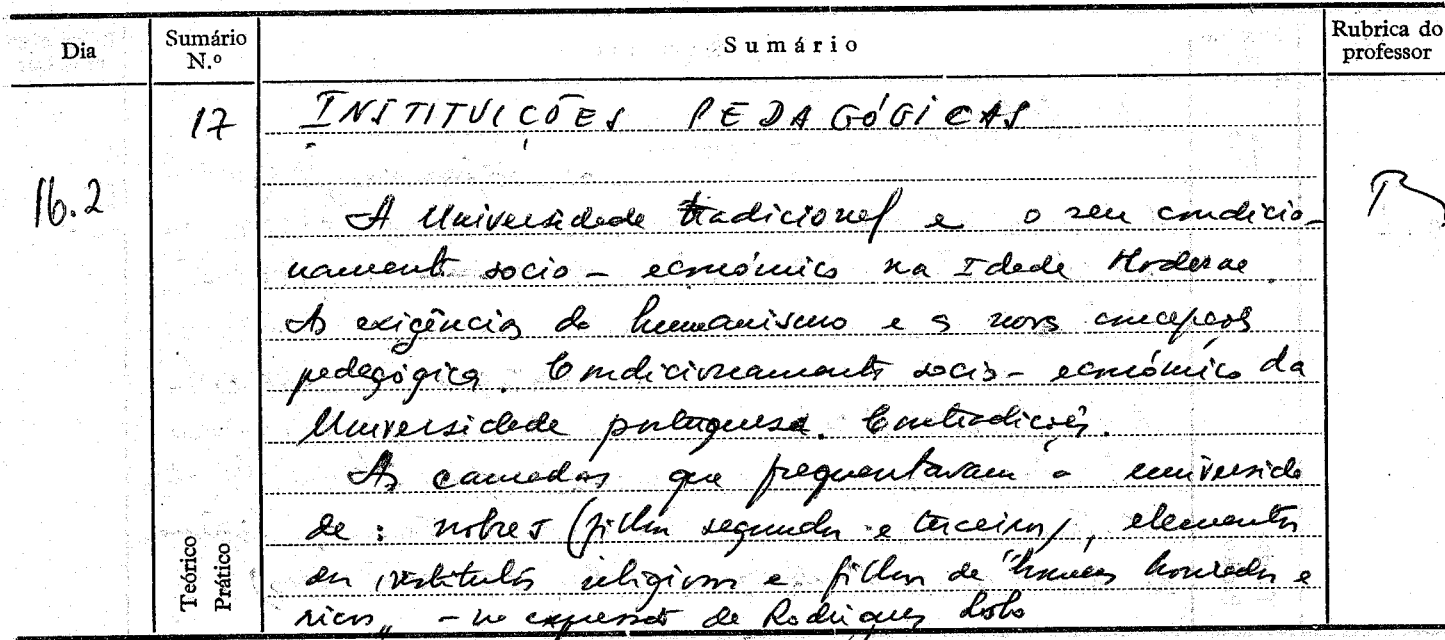 Dia
Sumário N.º
Sumário
Rubrica do professor
17
INSTITUIÇÕES PEDAGÓGICAS
16.2
A Universidade tradicional e o seu condicio-
namento socio-económico na Idade Moderna.
As exigências do humanismo e as novas concepções
pedagógicas. Condicionamento socio-económico da
Universidade portuguesa. Contradições.
As camadas que frequentavam a universida
de: nobres (filhos segundos e terceiros), elementos
dos institutos religiosos e filhos de "homens honrados e
ricos" - na expressão de Rodrigues Lobo
Teórico
Prático